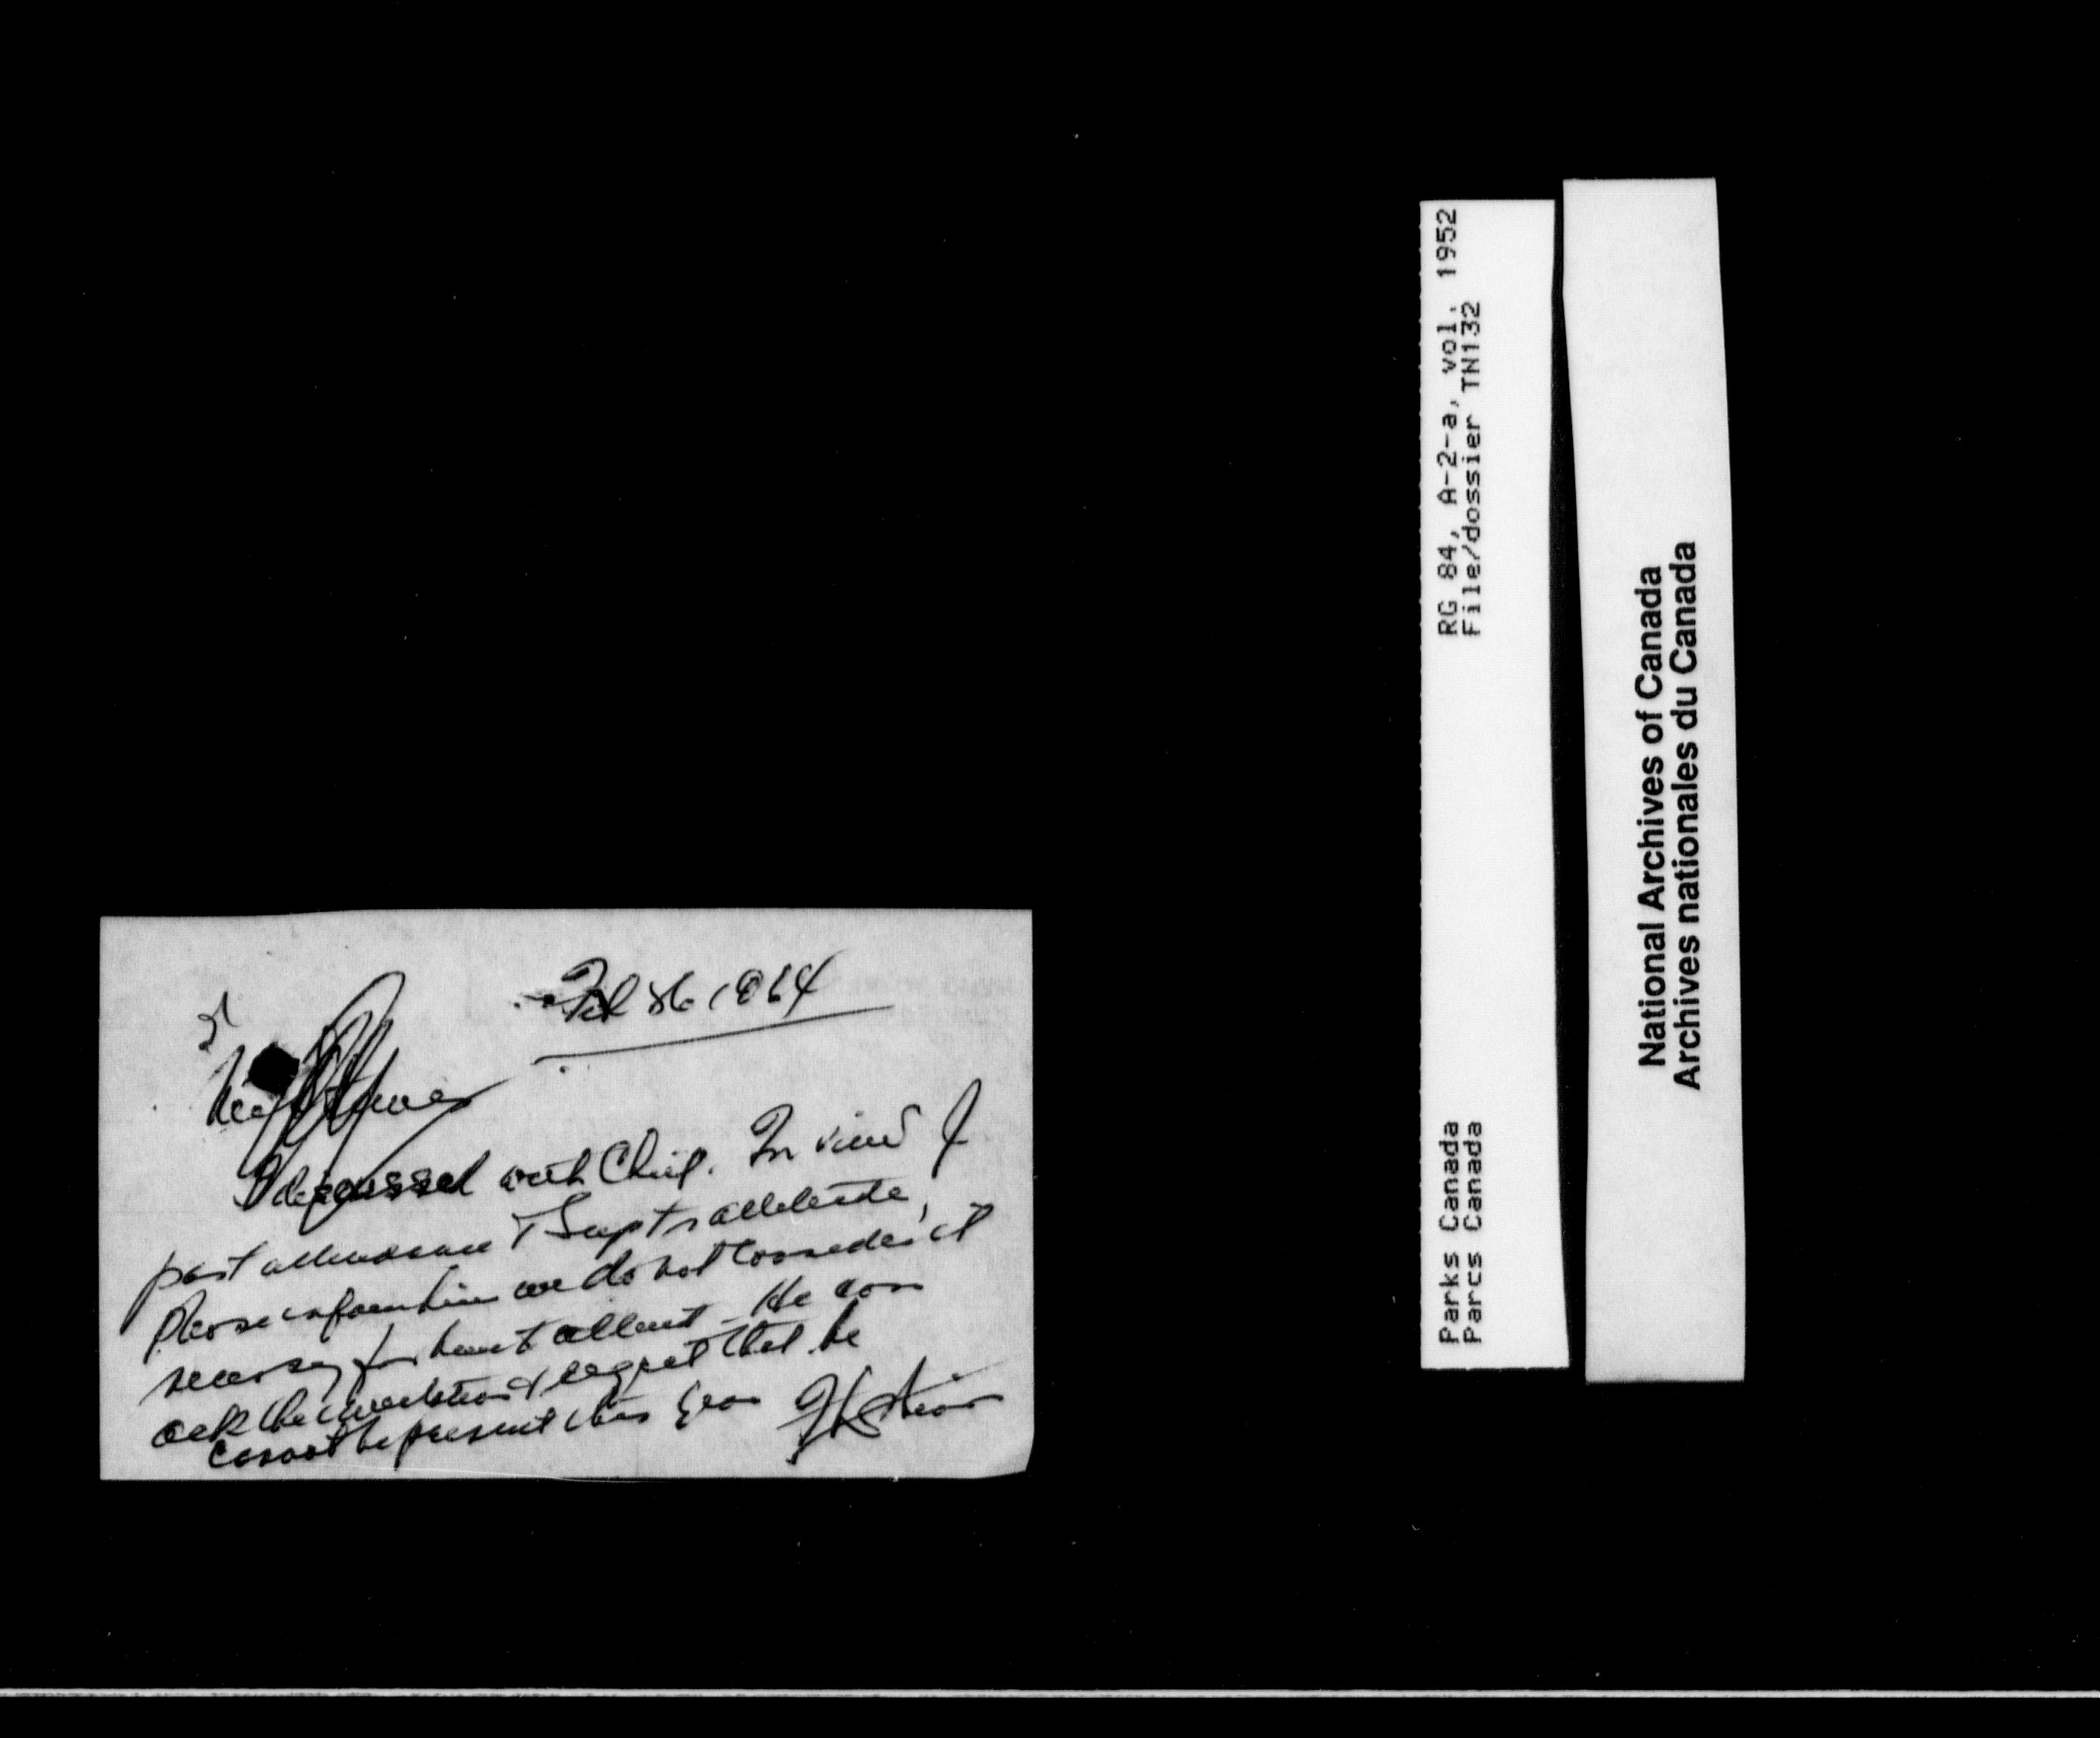 1964
I discussed with Chief. In view of
past attendance & Supt's attitude,
Please inform him we do not consider it
necessary for him to attend - He can
ack the invitation & regret that he
cannot be present this year
RG 84, A-2-a, vol. 1952
File/dossier TN132
Parks Canada
Parcs Canada
National Archives of Canada
Archives nationales du Canada